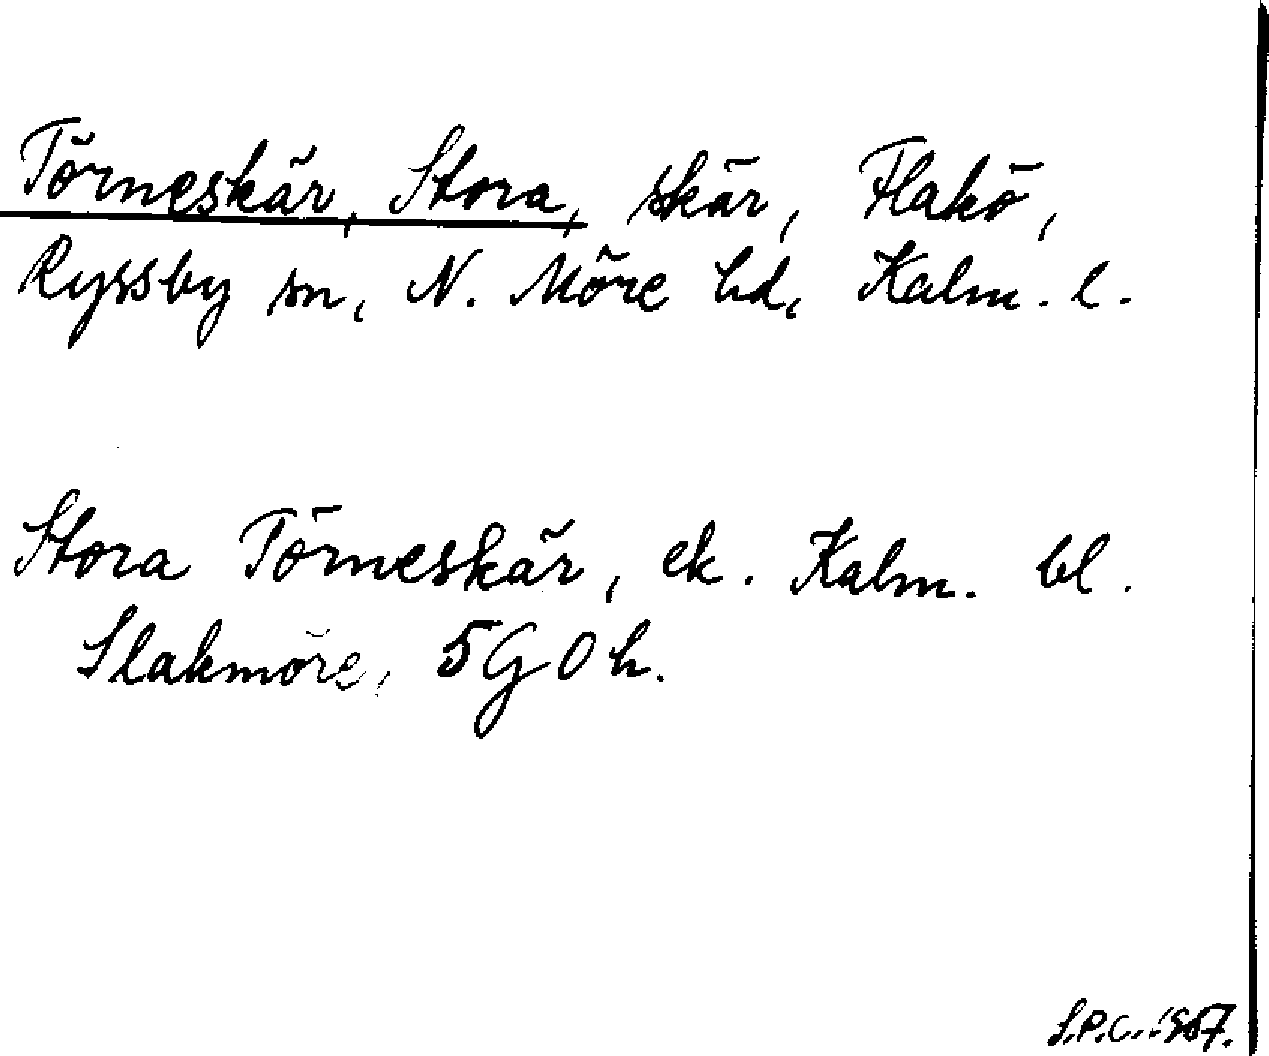 Törneskär, Stora, skär, Flakö,
Ryssby sn, N. Möre hd, Kalm. l.
Stora Törneskär, ek. Kalm. bl.
Slakmöre, 5 G 0 h.
S.P.C. 1967.